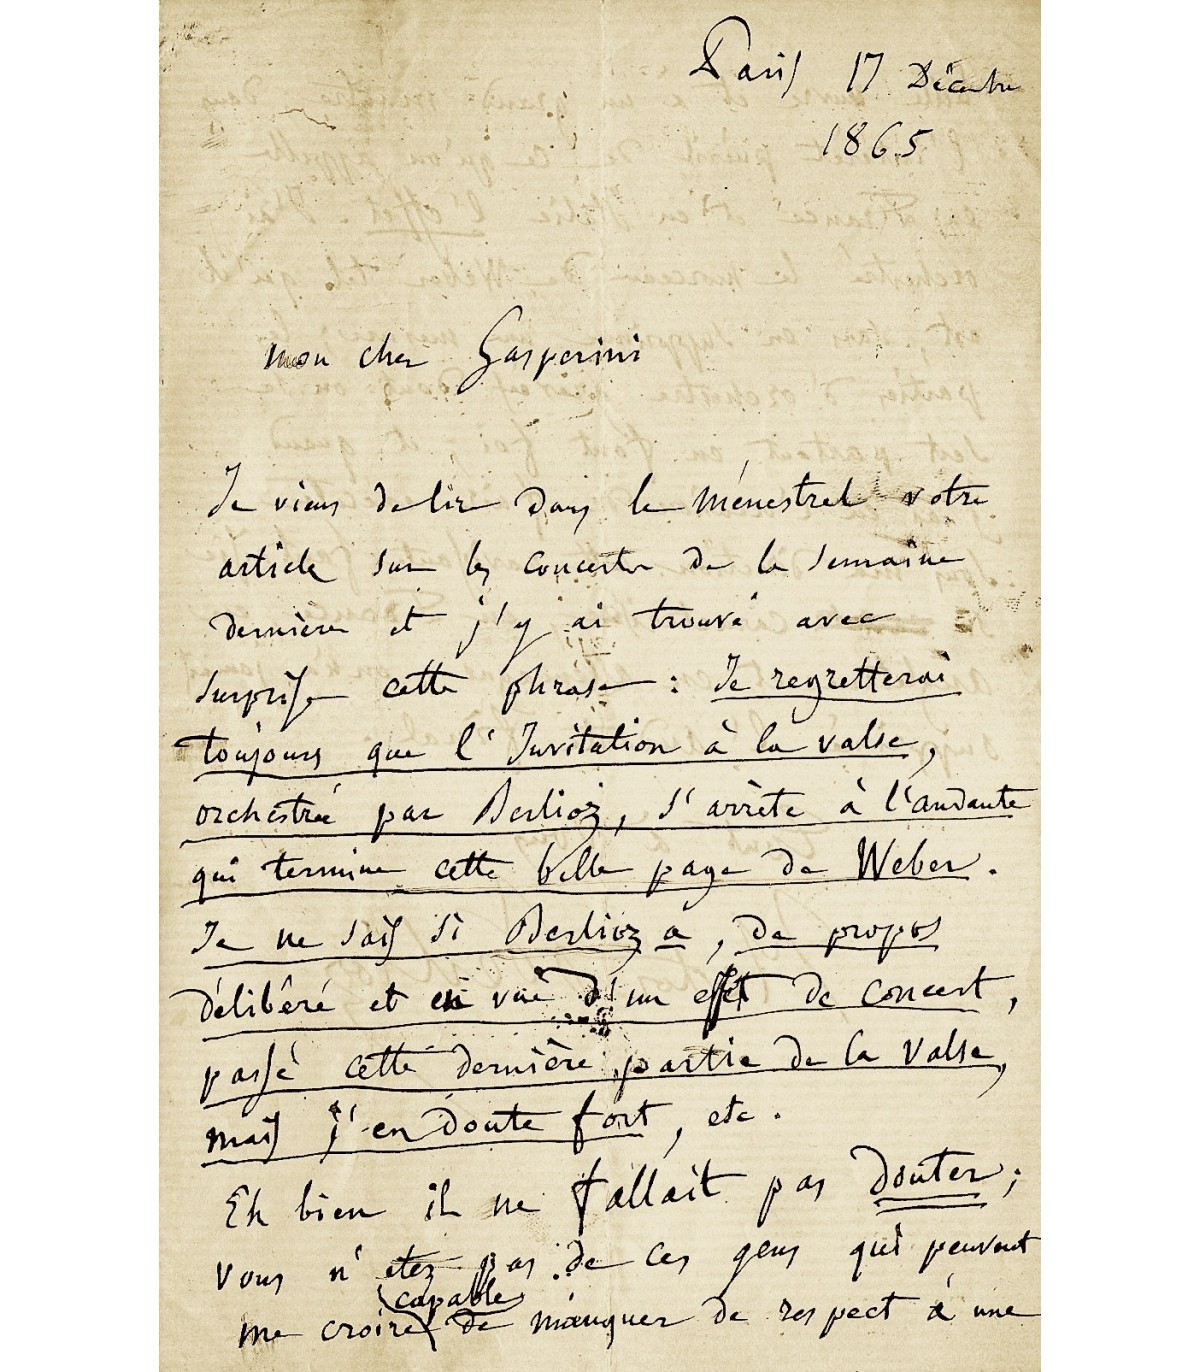 Paris 17 Décembre
1865
mon cher Gasperini
Je viens de lire dans le Ménestrel votre
article sur les concerts de la semaine
dernière et j'y ai trouvé avec
surprise cette phrase : Je regretterai
toujours que l'Invitation à la valse,
orchestrée par Berlioz, s'arrête à l'andante
qui termine cette belle page de Weber.
Je ne sais si Berlioz a, de propos
délibéré et en vue d'un effet de concert,
passé cette dernière partie de la valse,
mais j'en doute fort, etc.
Eh bien il ne fallait pas douter;
vous n'etez pas de ces gens qui peuvent
capable
me croire de manquer de respect à une